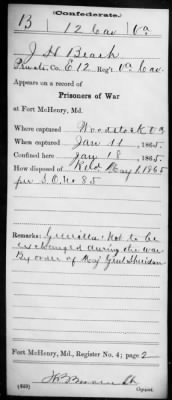 (Confederate.)
B 12 Cav Va
J H Beach
Private, Co. E. 12 Reg't Va. Cav.
Appears on a record of
Prisoners of War
at Fort McHenry, Md.
Where captured Woodstock Va
When captured Jan 11, 1865.
Confined here Jan 18, 1865.
How disposed of May 1, 1865
per S.O. No 85
Remarks: Guerrilla. Not to be
exchanged during the war
By order of Maj Genl Sheridan
Fort McHenry, Md., Register No. 4; page 2
Copyist.